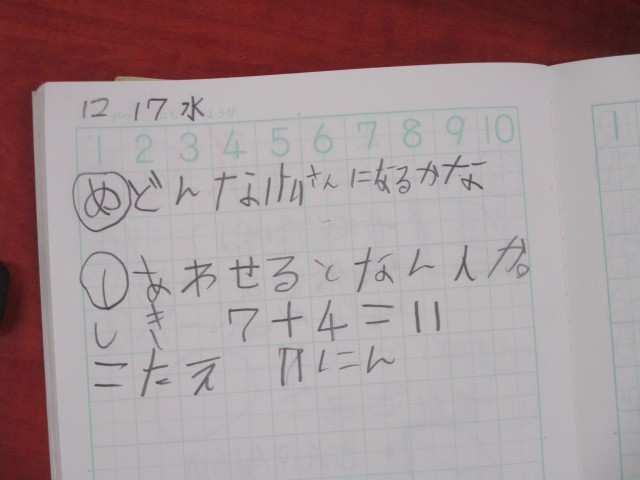 12 17 水
1 2 3 4 5 6 7 8 9 10 1
め どんなけいさんになるかな
① あわせるとなん人か。
しき 7+4=11
こたえ 11にん